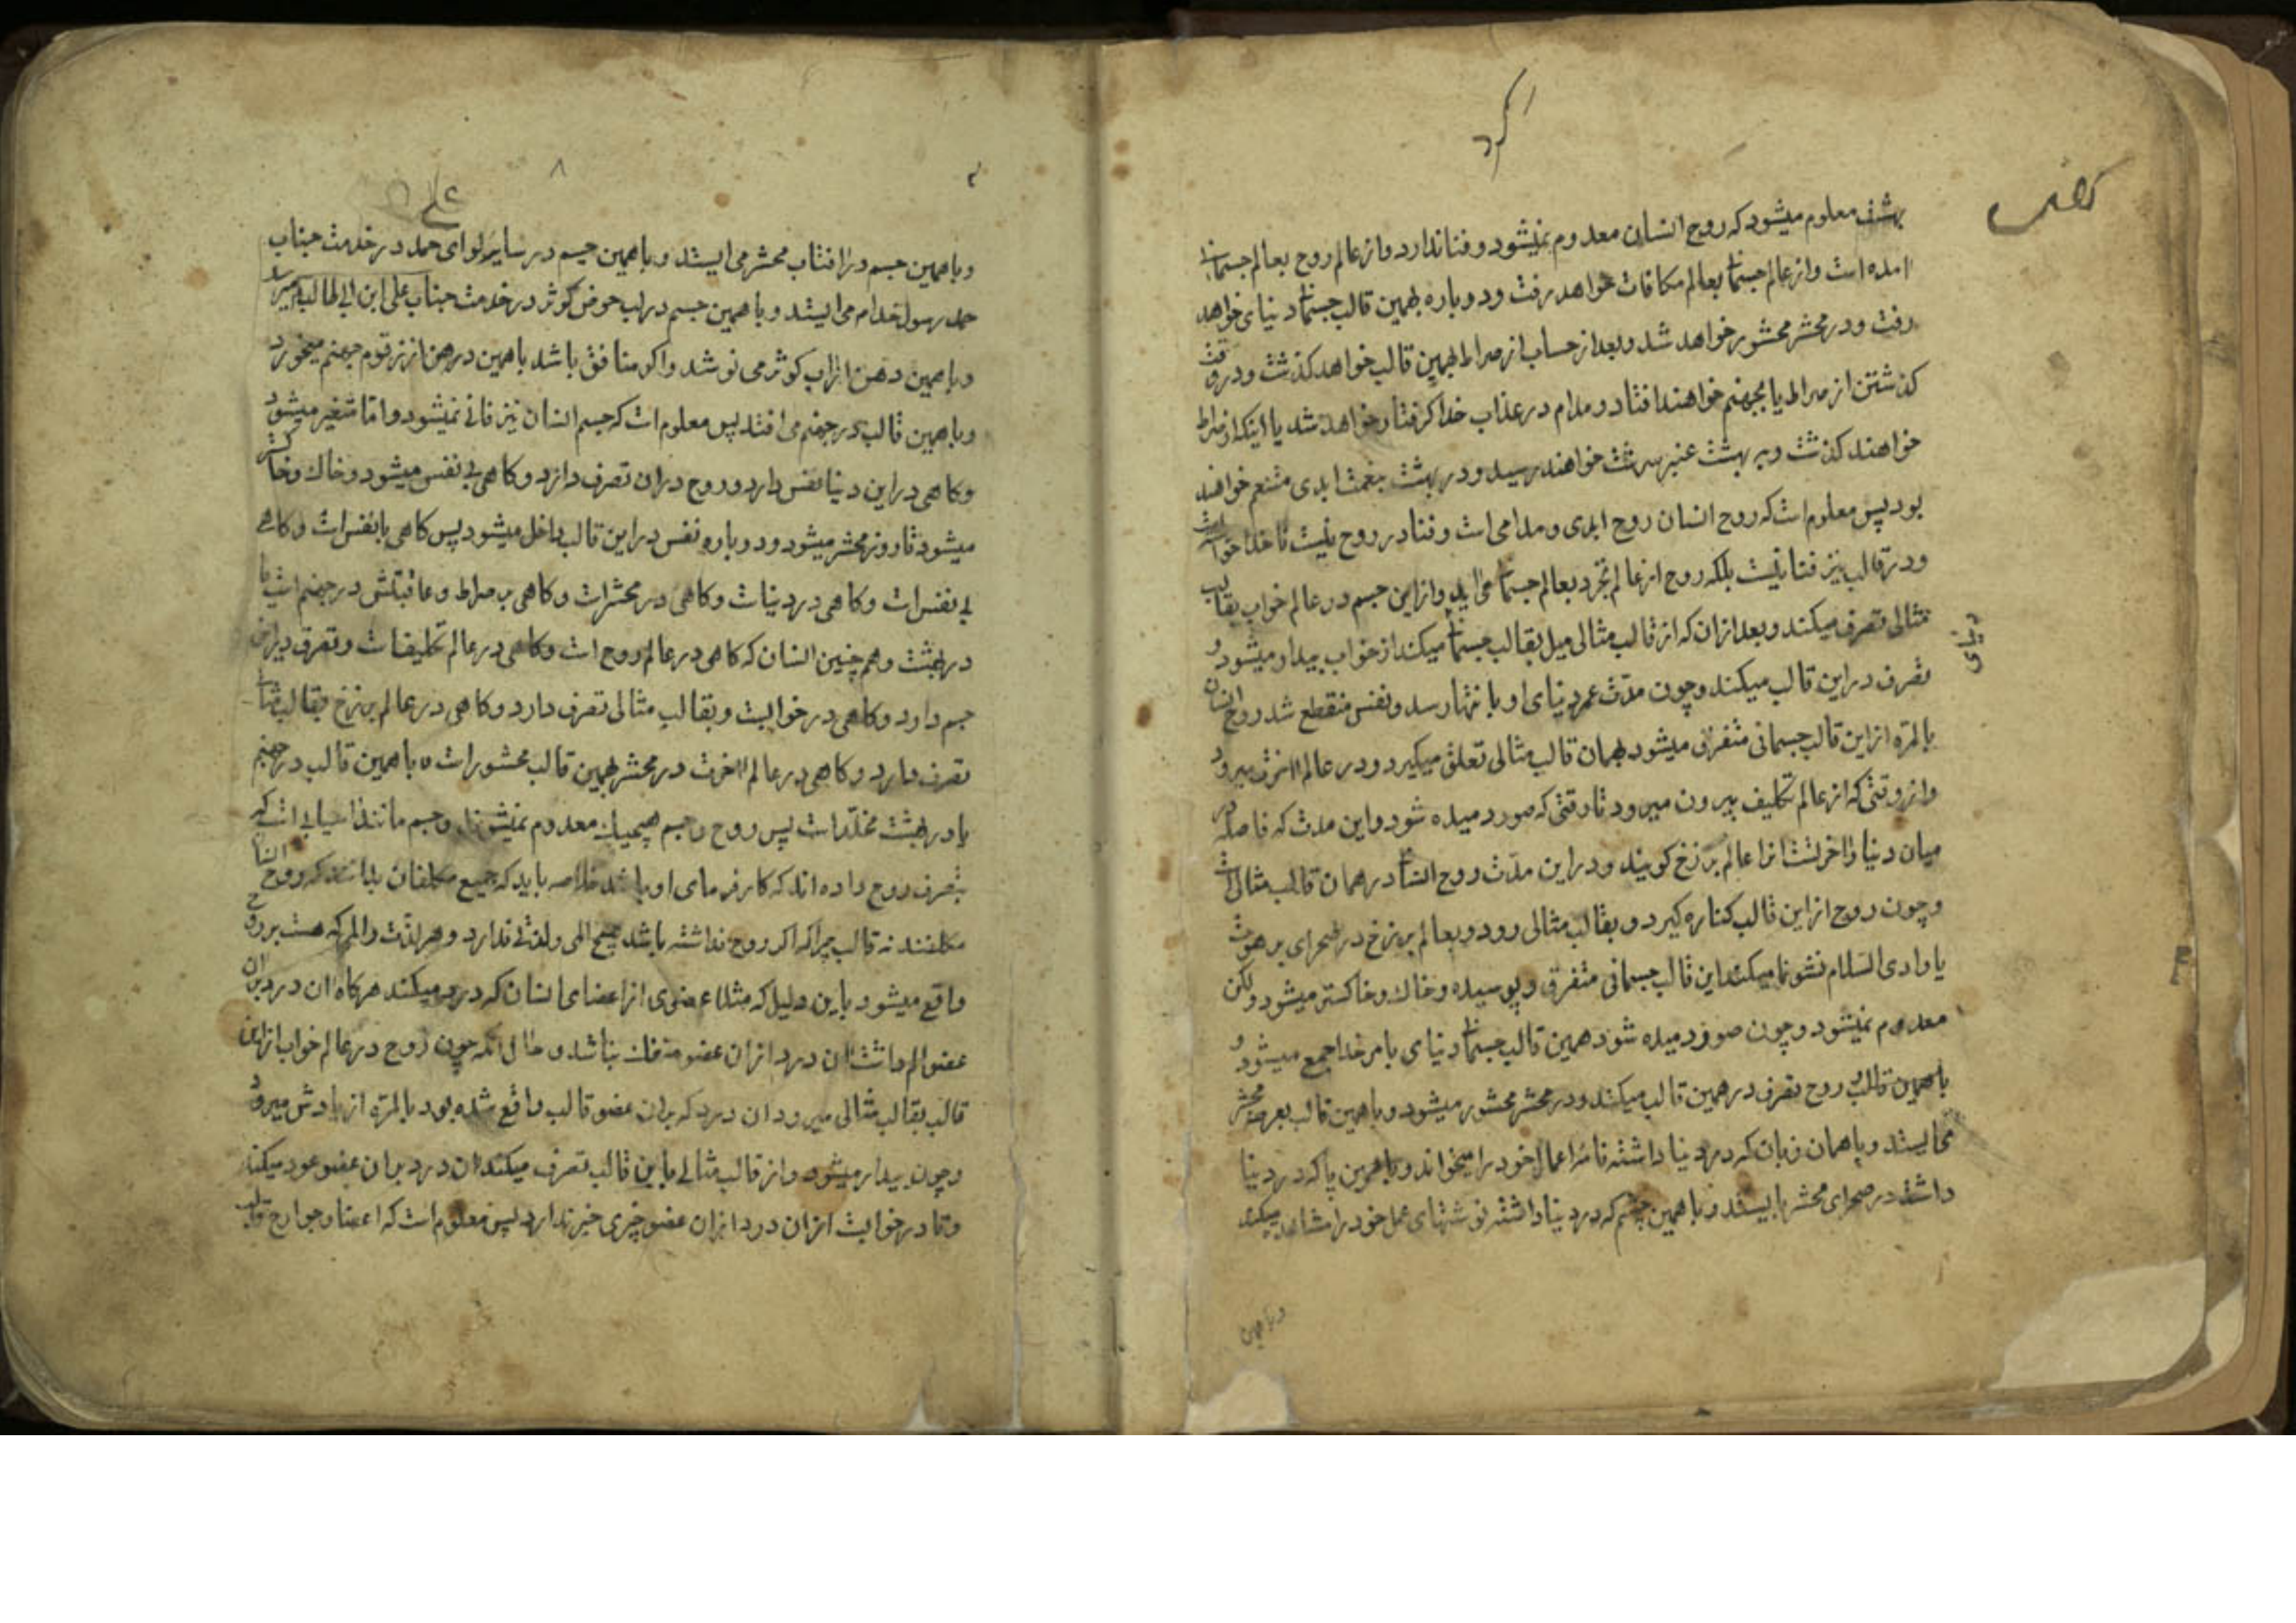 بهشت معلوم میشود که روح انسان معدوم نمیشود و فنا ندارد و از عالم روح بعالم جسمانی
امده است و از عالم جسمانی بعالم مکافات خواهد رفت و دوباره بهمین قالب جسمانی دنیای خواهد
رفت و در محشر محشور خواهد شد و بعد از حساب از صراط بهمین قالب خواهد کذشت و در وقت
کذشتن از صراط یا بجهنم خواهند افتاد و مدام در عذاب خدا کرفتار خواهد شد یا اینکه از صراط
خواهند کذشت و به بهشت عنبر سرشت خواهند رسید و در بهشت بنعمت ابدی متنعم خواهند
بود پس معلوم است که روح انسان روح ابدی و مدامی است و فنا در روح نیست تا خدا خواسته
و در قالب نیز فنا نیست بلکه روح از عالم تجرد بعالم جسمانی می اید و از این جسم در عالم خواب بقالب
مثالی تصرف میکند و بعد از ان که از قالب مثالی میل بقالب جسمانی میکند از خواب بیدار میشود و
تصرف در این قالب میکند و چون مدّت عمر دنیای او بانتها رسد و نفس منقطع شد روح انسان
بالمرّه از این قالب جسمانی متفرق میشود بهمان قالب مثالی تعلق میکیرد و در عالم اخرت میرود
و از وقتی که از عالم تکلیف بیرون میرود تا وقتی که صور دمیده شود و این مدت که فاصله
میان دنیا و اخرتست انرا عالم برزخ کویند و در این مدّت روح انسان در همان قالب مثالی است
و چون روح از این قالب کناره کیرد و بقالب مثالی رود و بعالم برزخ در صحرای برهوت
یا وادی السّلام نشو نما میکند این قالب جسمانی متفرق و پوسیده و خاک و خاکستر میشود ولکن
معدوم نمیشود و چون صور دمیده شود همین قالب جسمانی دنیای بامر خدا جمع میشود و
باهمین قالب روح تصرف در همین قالب میکند و در محشر محشور میشود و باهمین قالب بعرصه محشر
می ایستد و باهمان زبان که در دنیا داشته نامه اعمال خود را میخواند و باهمین پا که در دنیا
داشته در صحرای محشر ایستد و باهمین چشم که در دنیا داشته نوشتهای عمل خود را مشاهده میکند
و باهمین
۸
و باهمین جسم در افتاب محشر می ایستد و باهمین جسم در سایه لوای حمد در خدمت جناب
رسول خدا م می ایستد و باهمین جسم در لب حوض کوثر در خدمت جناب علی ابن ابی طالب میرسد
و باهمین دهن از اب کوثر می نوشد و اکر منافق باشد باهمین دهن از زقوم جهنم میخورد
و باهمین قالب در جهنم می افتد پس معلوم است که جسم انسان نیز فانی نمیشود و اما متغیر میشود
و کاهی در این دنیا نفس دارد و روح در ان تصرف دارد و کاهی بی نفس میشود و خاک و خاکستر
میشود تا روز محشر میشود و دوباره نفس در این قالب داخل میشود پس کاهی بانفس است و کاهی
بی نفس است و کاهی در دنیاست و کاهی در محشر است و کاهی بر صراط و عاقبتش در جهنم است یا
در بهشت و همچنین انسان که کاهی در عالم روح است و کاهی در عالم تکلیف است و تصرف در این
جسم دارد و کاهی در خوابست و بقالب مثالی تصرف دارد و کاهی در عالم برزخ بقالب مثالی
تصرف دارد و کاهی در عالم اخرت در محشر بهمین قالب محشور است باهمین قالب در جهنم
یا در بهشت مخلّد است پس روح و جسم هیچیک معدوم نمیشوند و جسم مانند اسیابی است که
بتصرف روح داده اند که کارفرمای او باشد خلاصه باید که جمیع مکلفان بدانند که روح انسان
مکلفند نه قالب چرا که اکر روح نداشته باشد هیچ المی و لذتی ندارد و هر لذّت و المی که هست بروح
واقع میشود باین دلیل که مثلا عضوی از اعضای انسان که درد میکند هرکاه ان درد بران
عضو الم داشت ان درد از ان عضو منفک نباشد و حال انکه چون روح در عالم خواب از این
قالب بقالب مثالی میرود ان درد که بران عضو قالب واقع شده بود بالمرّه از یادش میرود
و چون بیدار میشود و از قالب مثالی باین قالب تصرف میکند ان درد بران عضو عود میکند
و تا در خوابست از ان درد از ان عضو چیزی خبر ندارد پس معلوم است که اعضا و جوارح قالب